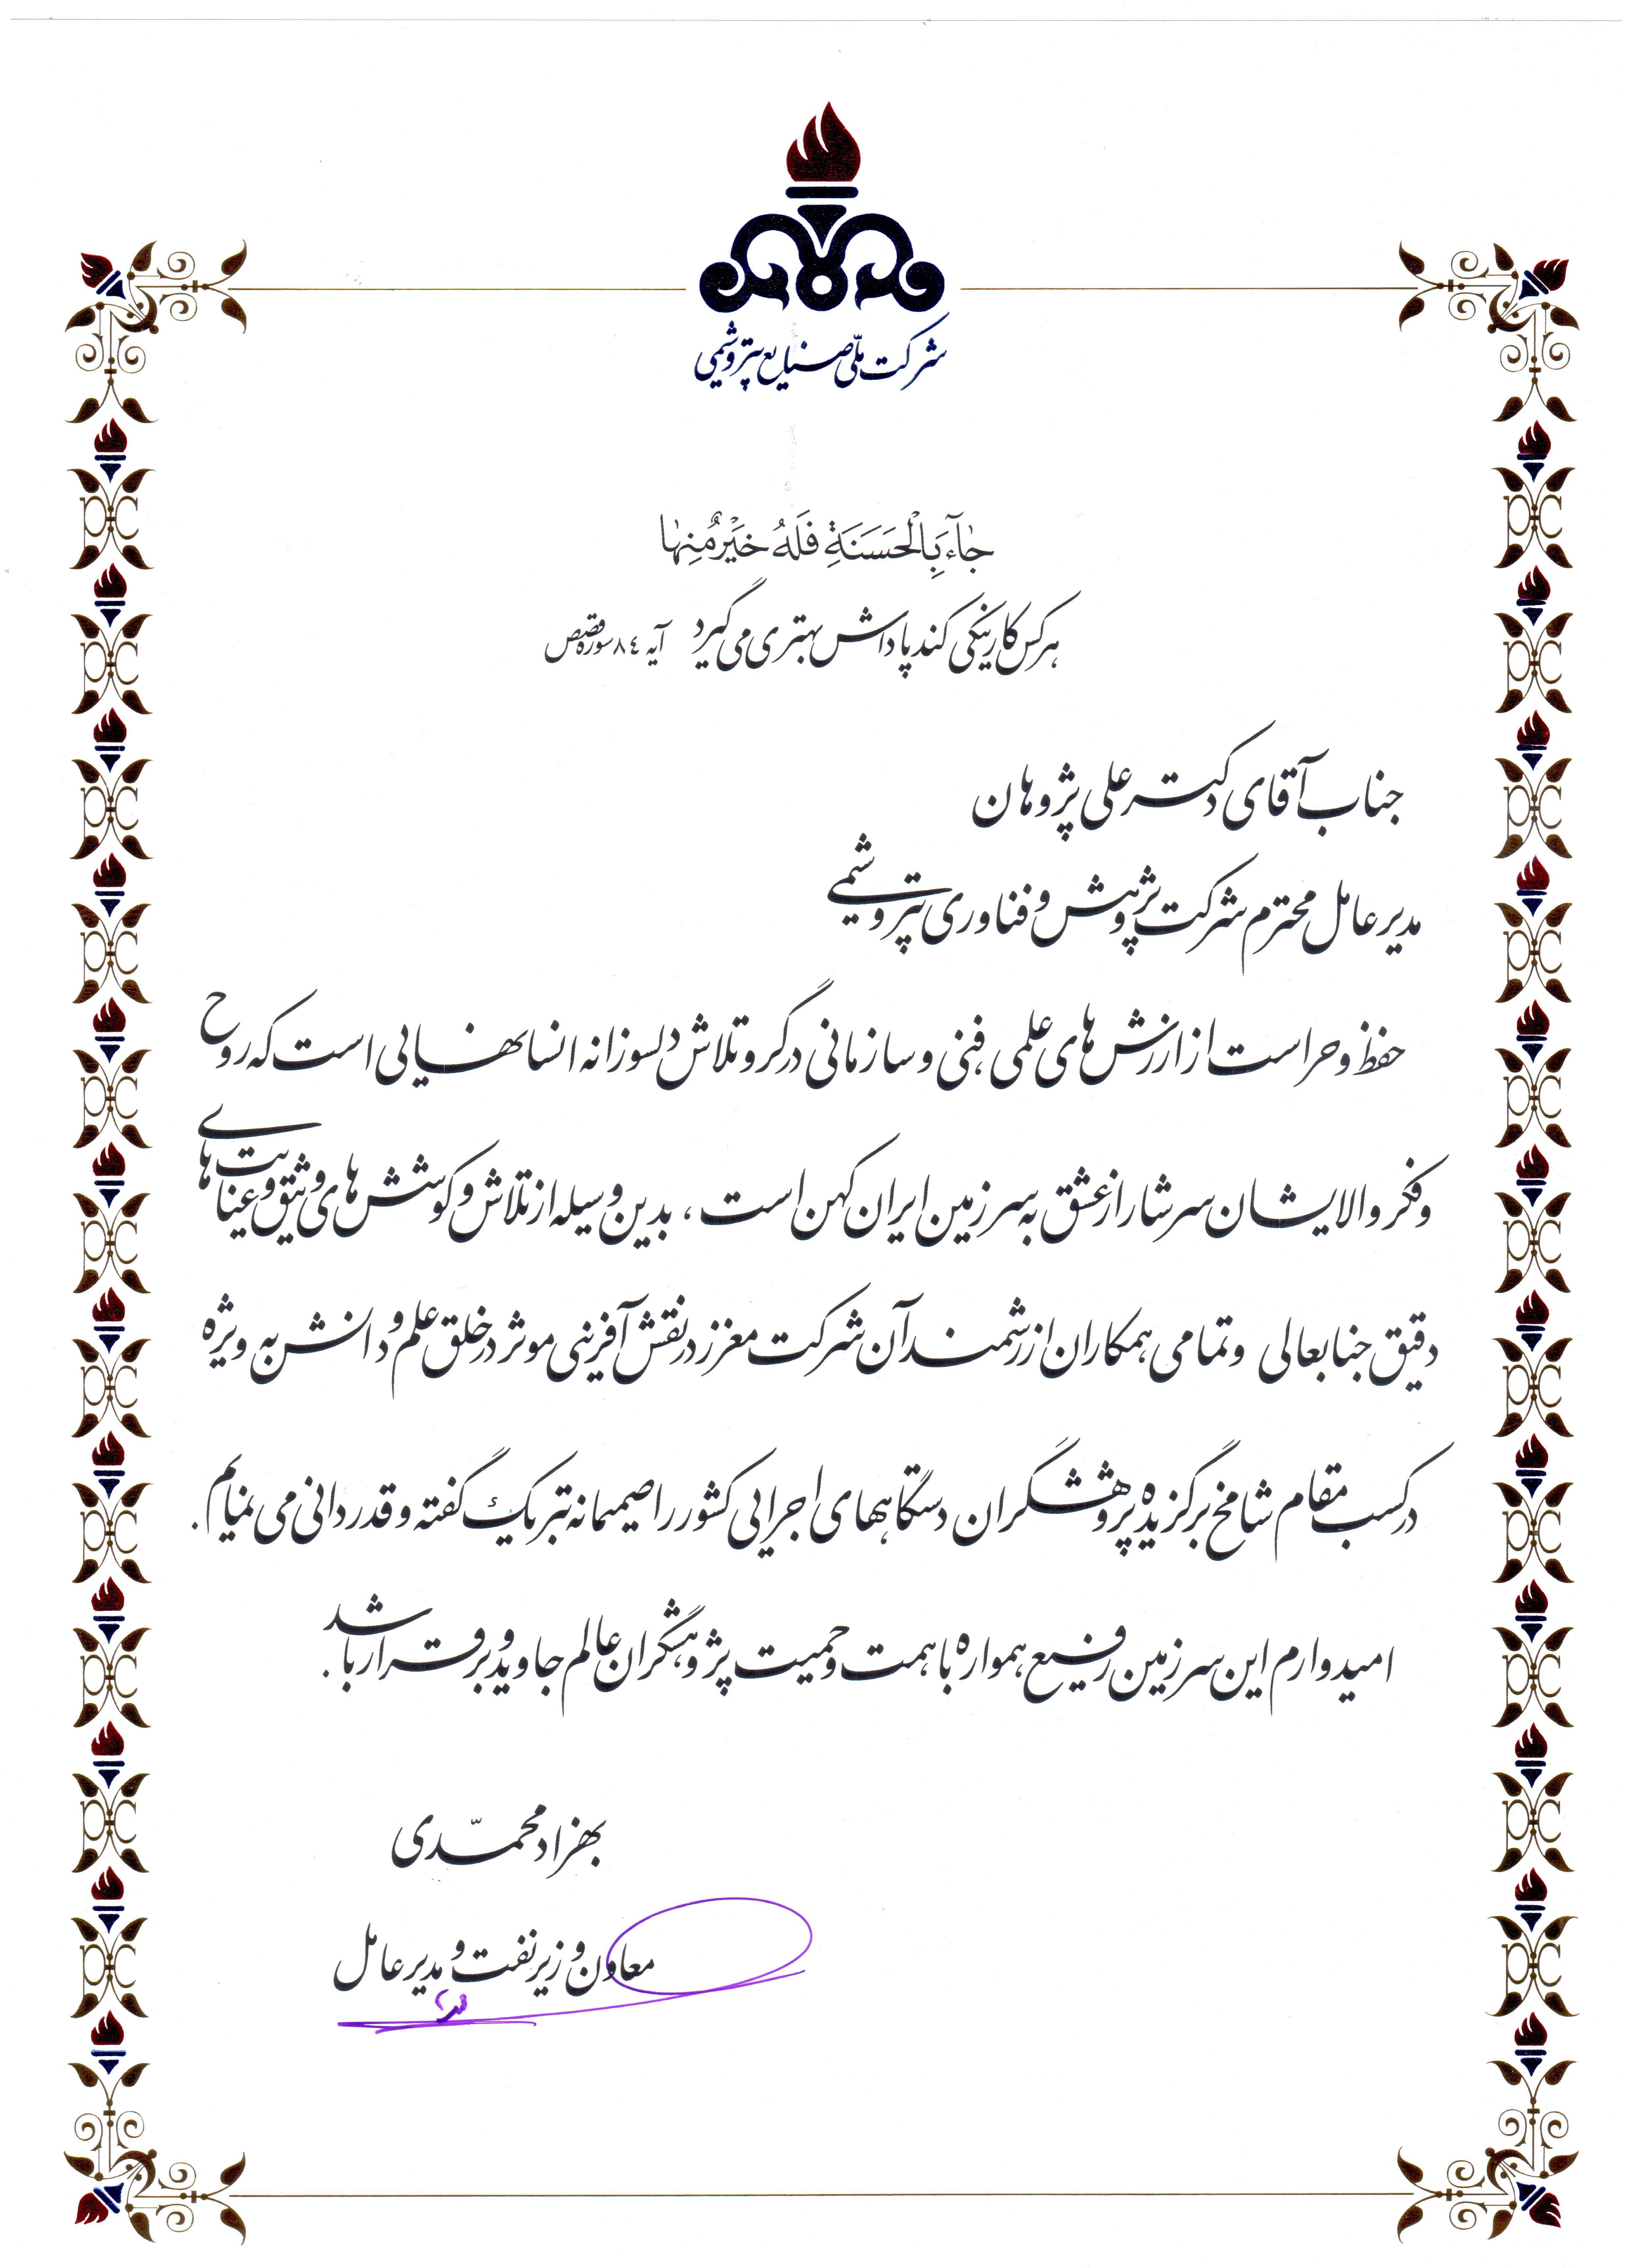 شرکت ملّی صنایع پتروشیمی
جٰآءَ بِالْحَسَنَةِ فَلَهُ خَیْرٌ مِنهٰا
هر کس کار نیکی کند پاداش بهتری می گیرد آیه ۸۴ سوره قصص
جناب آقای دکتر علی پژوهان
مدیر عامل محترم شرکت پژوهش و فناوری پتروشیمی
حفظ و حراست از ارزش های علمی ، فنی و سازمانی در گرو تلاش دلسوزانه انسانهایی است که روح
و فکر والایشان سرشار از عشق به سرزمین ایران کهن است ، بدین وسیله از تلاش و کوشش های وثیق و عنایت های
دقیق جنابعالی و تمامی همکاران ارزشمند آن شرکت معزز در نقش آفرینی موثر در خلق علم و دانش به ویژه
در کسب مقام شامخ برگزیده پژوهشگران دستگاههای اجرایی کشور را صمیمانه تبریک گفته و قدردانی می نمایم .
امیدوارم این سرزمین رفیع همواره با همت و حمیت پژوهشگران عالم جاوید و برقرار باشد .
بهزاد محمّدی
معاون وزیر نفت و مدیر عامل